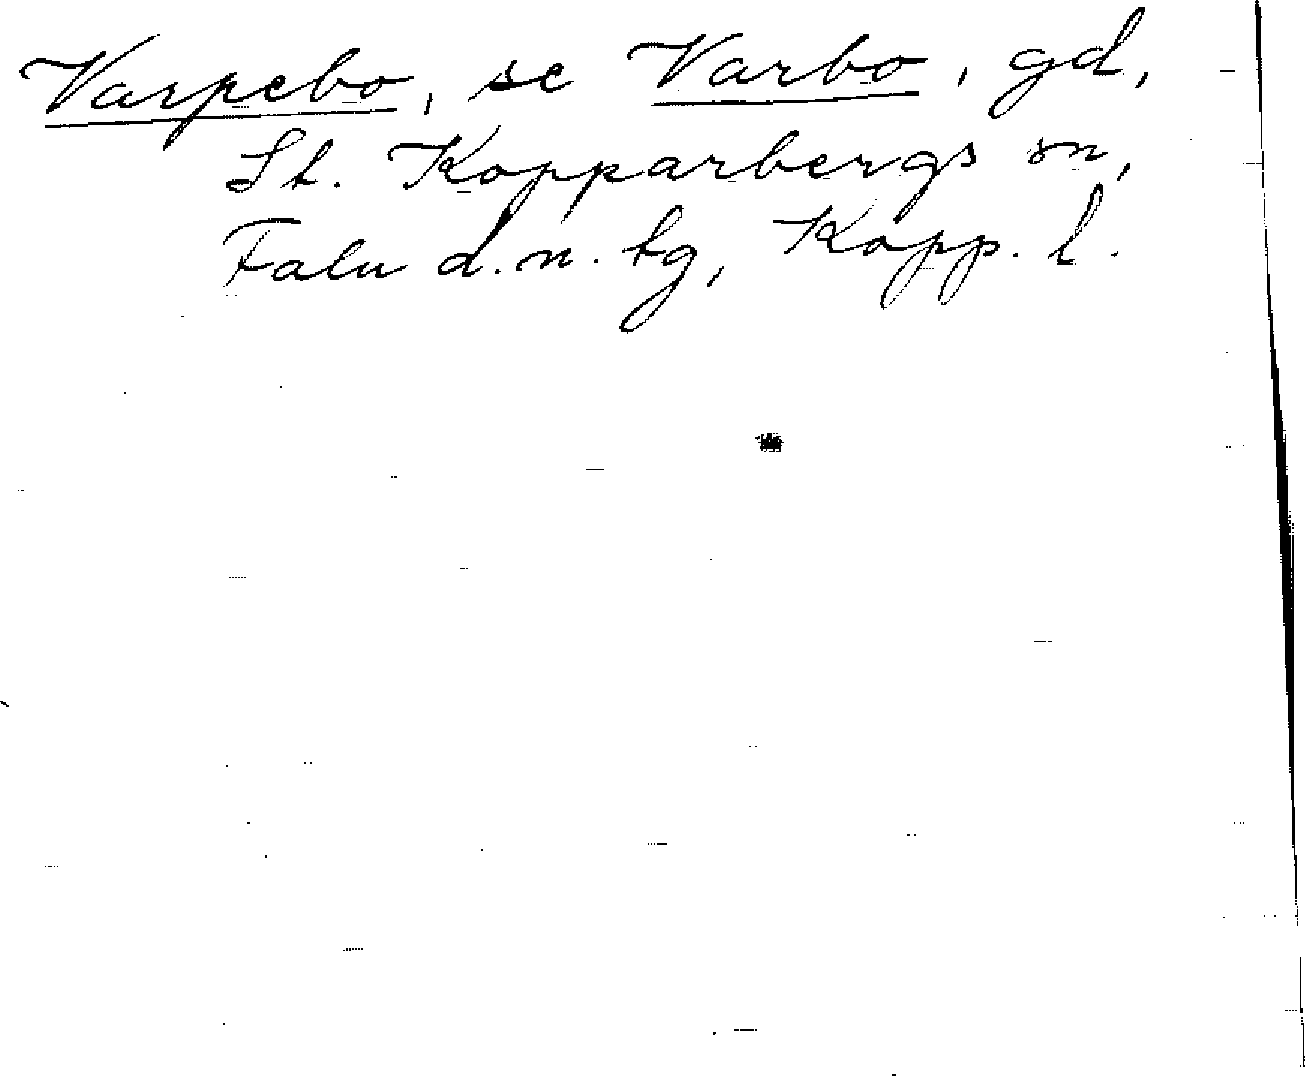 Varpebo, se Varbo, gd,
St. Kopparbergs sn,
Falu d. n. tg, Kopp. l.